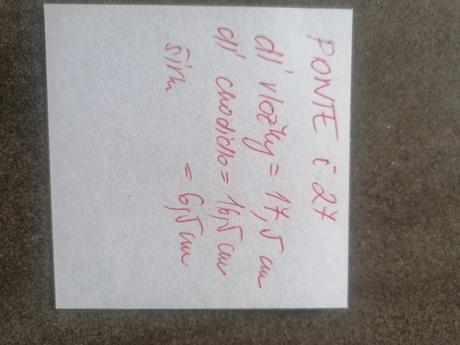 PONTE č 27
dĺ vložky = 17,5 cm
dĺ chodidlo = 16,5 cm
šírk = 6,5 cm